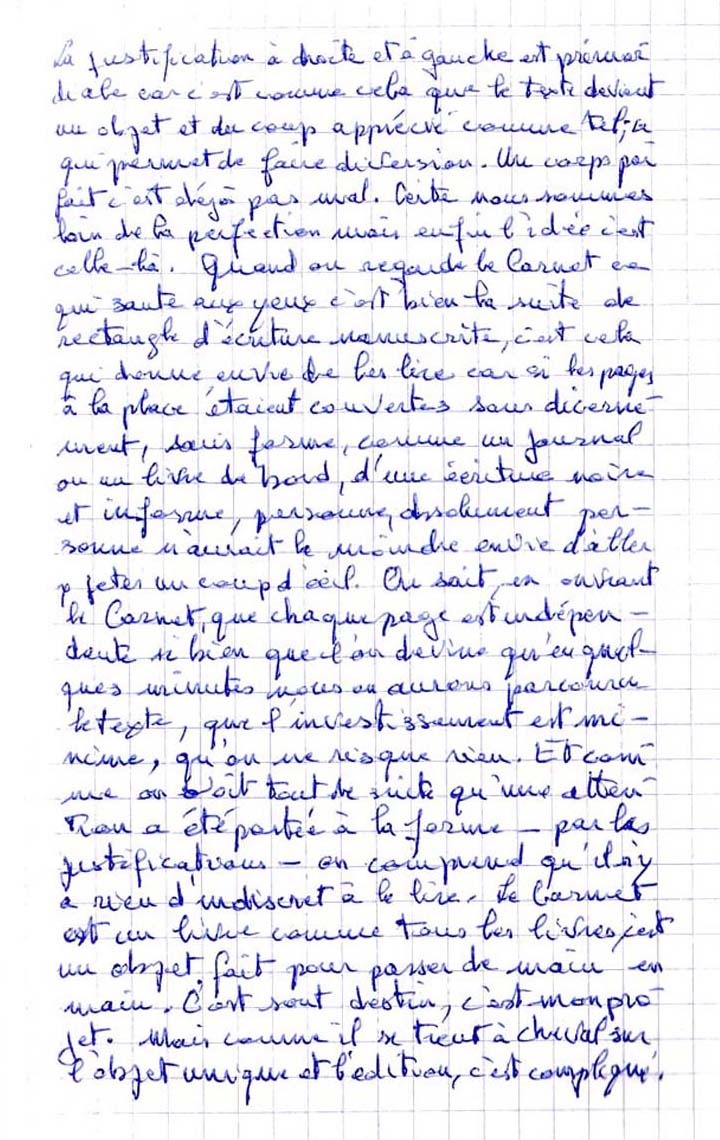 La justification à droite et à gauche est primor
diale car c'est comme cela que le texte devient
un objet et du coup apprécié comme tel,
qui permet de faire diversion. Un corps par
fait c'est déjà pas mal. Certe nous sommes
loin de la perfection mais enfin l'idée c'est
celle-là. Quand on regarde le Carnet ce
qui saute aux yeux c'est bien la suite de
rectangle d'écriture manuscrite, c'est cela
qui donne envie de les lire car si les pages
à la place étaient couvertes sans discerne-
ment, sans forme, comme un journal
ou un livre de bord, d'une écriture noire
et informe, personne, absolument per-
sonne n'aurait le moindre envie d'aller
y jeter un coup d'œil. On sait, en ouvrant
le Carnet, que chaque page est indépen-
dante si bien que l'on devine qu'en quel-
ques minutes nous en aurons parcouru
le texte, que l'investissement est mi-
nime, qu'on ne risque rien. Et com
me on voit tout de suite qu'une atten
tion a été portée à la forme – par les
justifications – on comprend qu'il n'y
a rien d'indiscret à le lire. Le Carnet
est un livre comme tous les livres, c'est
un objet fait pour passer de main en
main. C'est sont destin, c'est mon pro
jet. Mais comme il se tient à cheval sur
l'objet unique et l'édition, c'est compliqué.